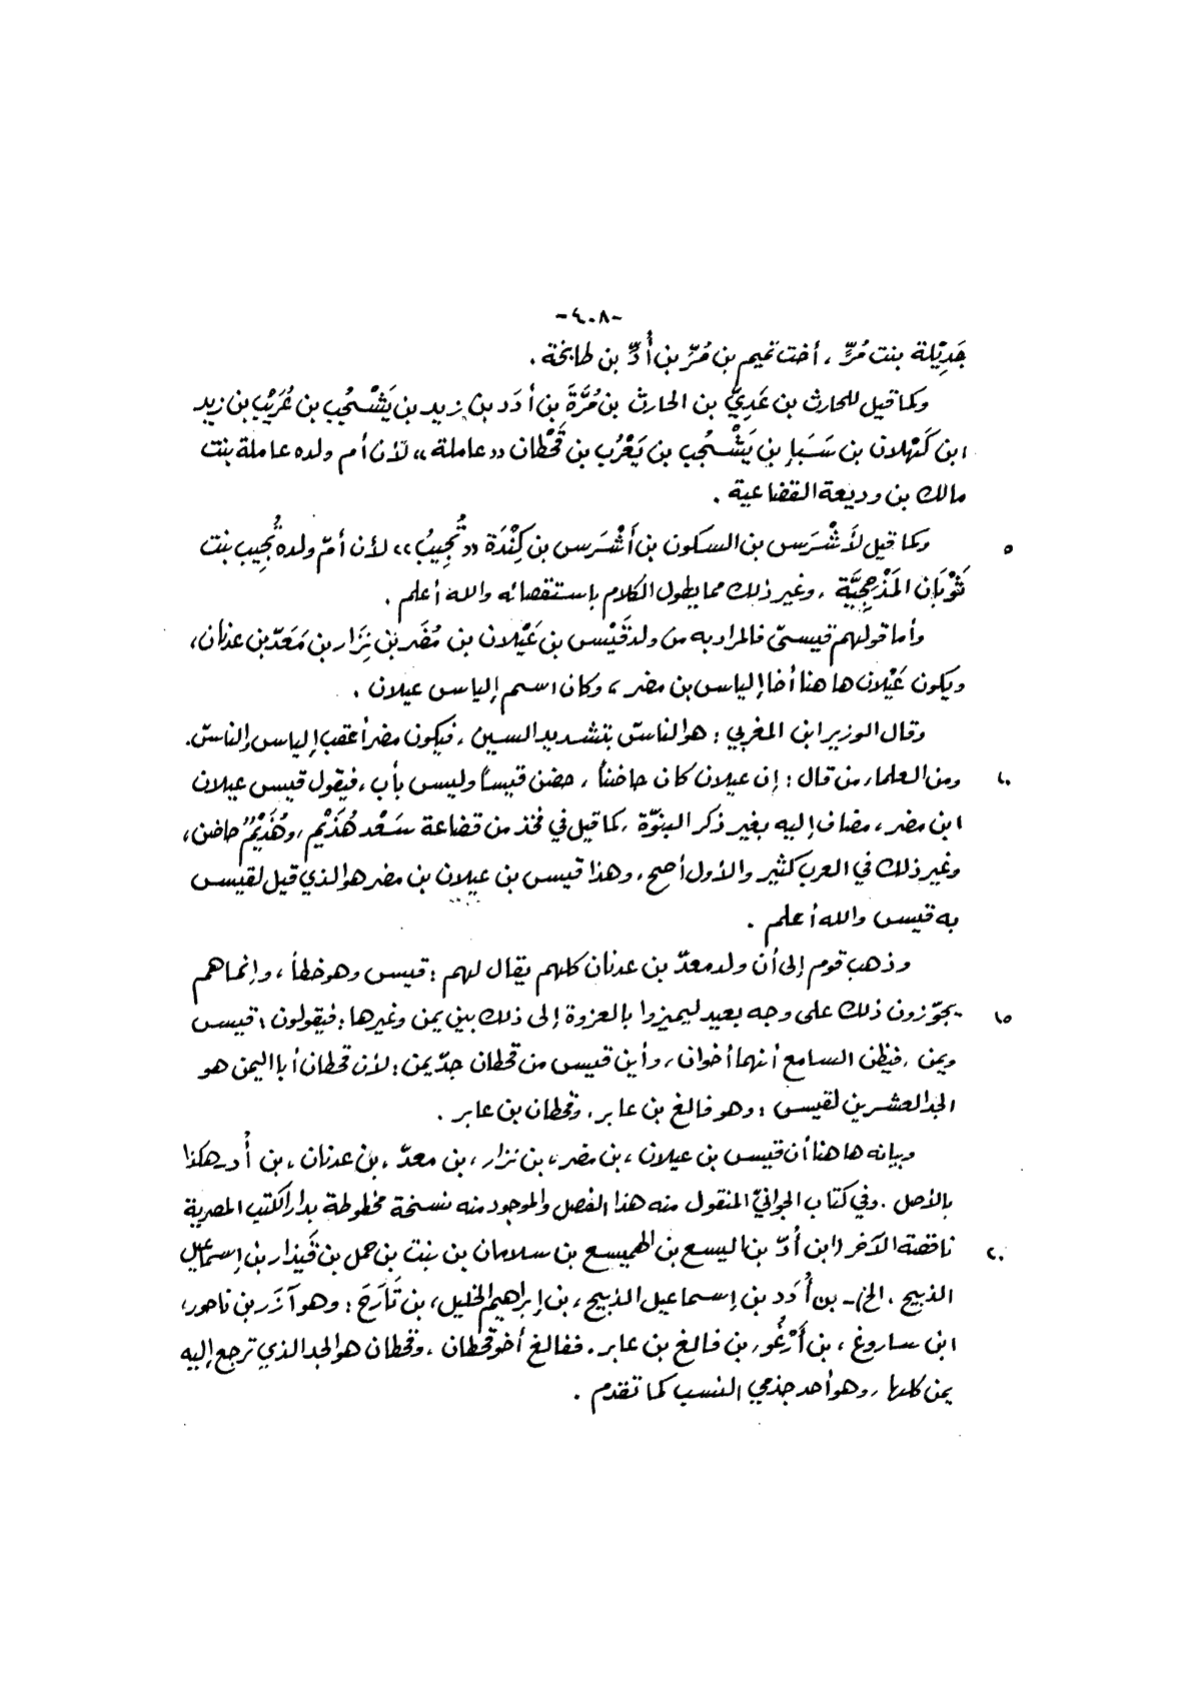 -٤٠٨-
جَدِيْلة بنت مُرٍّ ، أخت تميم بن مُرّ بن أُدِّ بن طابخة .
وكما قيل للحارث بن عَدِيّ بن الحارث بن مُرَّةَ بن أدَد بن زيد بن يَشْجُب بن عُرَيْب بن زيد
ابن كَهْلان بن سَبَإ بن يَشْجُب بن يَعْرُب بن قَحْطان «عاملة» لأن أم ولده عاملة بنت
مالك بن وديعة القضاعية .
٥ وكما قيل لأَشْرَس بن السكون بن أَشْرَس بن كِنْدَة «تُجِيبُ» لأن أمّ ولده تُجِيب بنت
ثَوْبَان المَذْحِجِيَّة ، وغير ذلك مما يطول الكلام باستقصائه والله أعلم .
وأما قولهم قيسيّ فالمراد به من ولد قَيْس بن عَيْلان بن مُضَر بن نِزَار بن مَعَدّ بن عدنان،
ويكون عَيْلان ها هنا أخا إلياس بن مضر ، وكان اسم إلياس عيلان .
وقال الوزير ابن المغربي : هو الناسّ بتشديد السين ، فيكون مضر أعقب إلياس والناسّ.
١٠ ومن العلماء من قال : إن عيلان كان حاضناً ، حضن قيساً وليس بأب ، فيقول قيس عيلان
ابن مضر ، مضاف إليه بغير ذكر البنوّة ، كما قيل في فخذ من قضاعة سَعْد هُذَيْم ، وهُذَيْمٌ حاضن ،
وغير ذلك في العرب كثير والأول أصح ، وهذا قيس بن عيلان بن مضر هو الذي قيل لقيس
به قيس والله أعلم .
وذهب قوم إلى أن ولد معدّ بن عدنان كلهم يقال لهم : قيس وهو خطأ ، وإنما هم
١٥ يجوّزون ذلك على وجه بعيد ليميزوا بالعزوة إلى ذلك بين يمن وغيرها ، فيقولون : قيس
ويمن ، فيظن السامع أنهما أخوان ، وأين قيس من قحطان جدّ يمن ؛ لأن قحطان أبا اليمن هو
الجد العشرين لقيس ؛ وهو فالغ بن عابر ، وقحطان بن عابر .
وبيانه ها هنا أن قيس بن عيلان ، بن مضر ، بن نزار ، بن معدّ ، بن عدنان ، بن أُد هكذا
بالأصل . وفي كتاب الجوّانيّ المنقول منه هذا الفصل والموجود منه نسخة مخطوطة بدار الكتب المصرية
٢٠ ناقصة الآخر (ابن أُدّ بن اليسع بن الهميسع بن سلامان بن بنت بن حمل بن قَيذار بن إسماعيل
الذبيح ، الخ)- بن أُدَد بن إسماعيل الذبيح ، بن إبراهيم الخليل ، بن تَارَحَ ؛ وهو آزَر بن ناحور ،
ابن ساروغ ، بن أَرْغُو ، بن فالغ بن عابر . ففالغ أخو قحطان ، وقحطان هو الجد الذي ترجع إليه
يمن كلها ، وهو أحد جذمي النسب كما تقدم .